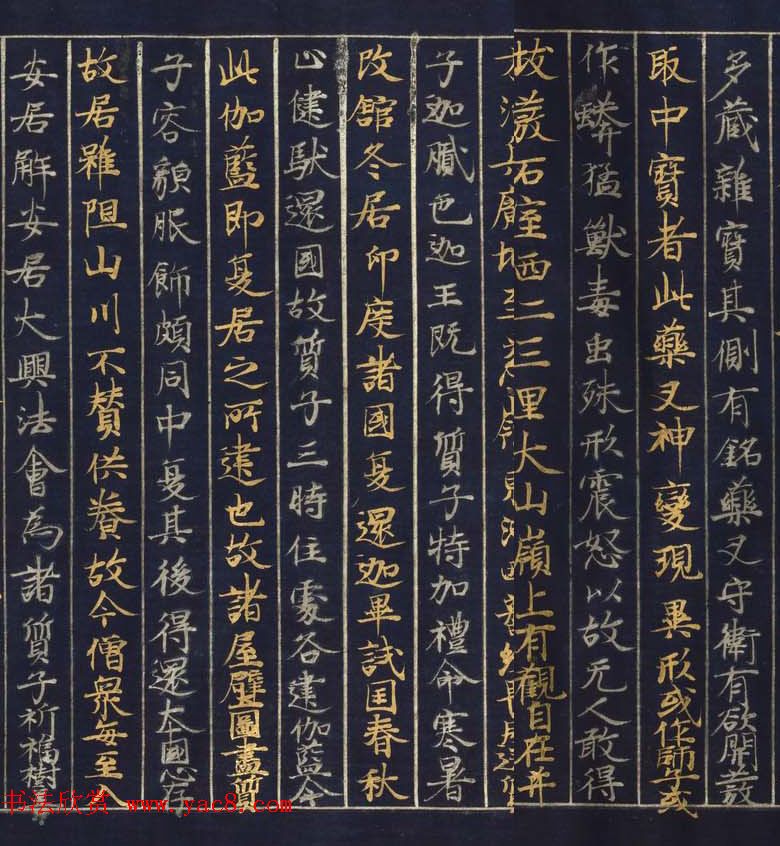 多藏雜寶其側有銘藥叉守衛有欲開發
取中寶者此藥叉神變現異形或作師子或
作蟒猛獸毒虫殊形震怒以故无人敢得
石室西二三里大山嶺上有觀自在并
子迦膩色迦王既得質子特加禮命寒暑
改館冬居印度諸國夏還迦畢試国春秋
止健馱還國故質子三時住處各建伽藍今
此伽藍即夏居之所建也故諸屋壁圖畫質
子容貌服飾頗同中夏其後得還本國心存
故居雖阻山川不賛供養故今僧眾每至入
安居解安居大興法會為諸質子祈福樹
书法欣赏 www.yac8.com